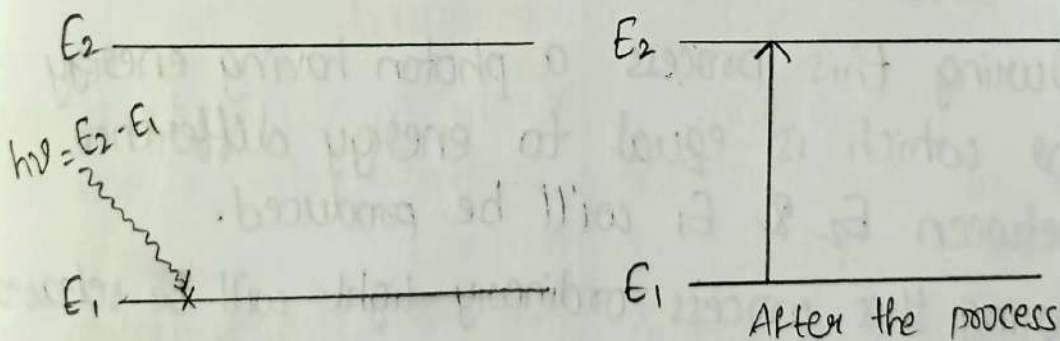 E2
E2
hν = E2 - E1
E1
E1
After the process